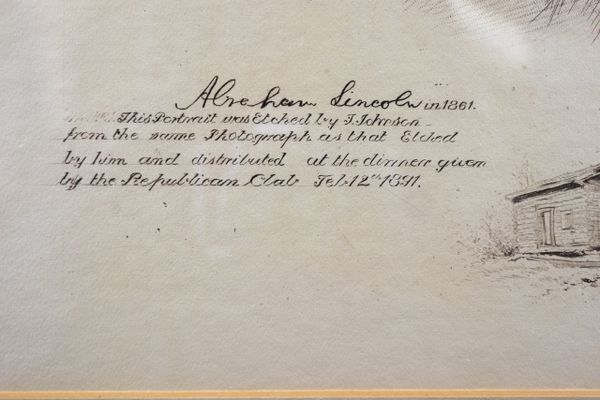 Abraham Lincoln in 1861.
This Portrait was Etched by T. Johnson
from the same Photograph as that Etched
by him and distributed at the dinner given
by the Republican Club Feb 12th 1891.